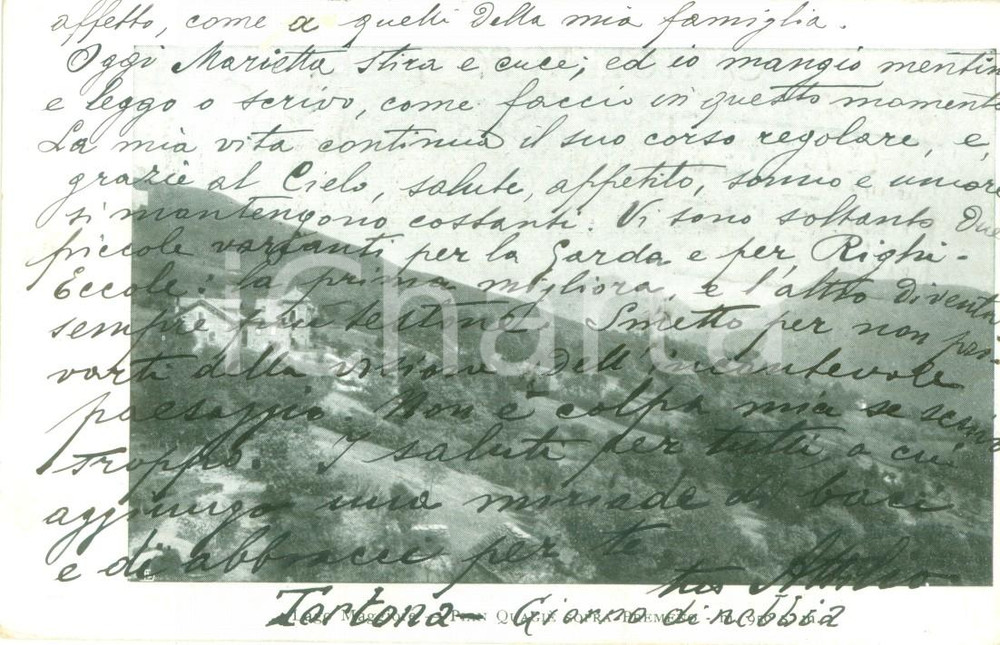 affetto, come a quelli della mia famiglia.
Oggi Marietta stira e cuce; ed io mangio mentin
e leggo o scrivo, come faccio in questo momento
La mia vita continua il suo corso regolare, e,
grazie al Cielo, salute, appetito, sonno e umore
si mantengono costanti. Vi sono soltanto due
piccole varianti per la Garda e per Righi-
Eccole: la prima migliora, e l'altro diventa
sempre più testine. Smetto per non pri-
varti della visione dell'incantevole
paesaggio. Non è colpa mia se scrivo
troppo. I saluti per tutti, a cui
aggiungo una miriade di baci
e di abbracci per te
tuo Attilio
Tortona Giorno di nebbia
Lago Maggiore - Pian Quagié sopra Premeno
iCharta